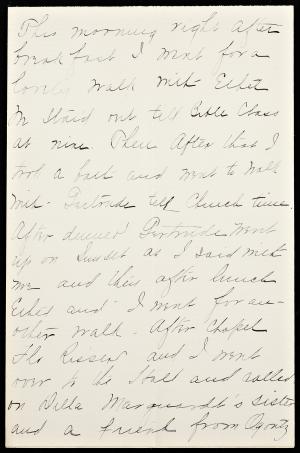 This morning right after
breakfast I went for a
lovely walk with Ethel
We staid out till Bible Class
at nine. Then after that I
took a bath and went to walk
with Gertrude till Church time.
After dinner Gertrude went
up on Sunset as I said with
me and then after lunch
Ethel and I went for an-
other walk. After Chapel
the and I went
over to the Hall and called
on Della Marquardt's sister
and a friend from Ogontz